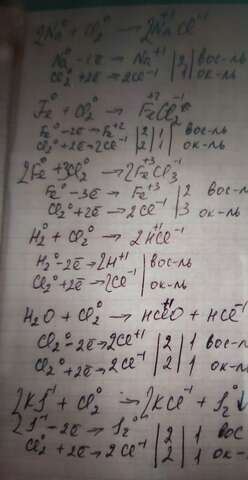 2Na⁰ + Cl₂⁰ → 2Na⁺¹Cl⁻¹
Na⁰ - 1e → Na⁺¹ | 2 | вос-ль
Cl₂⁰ + 2e → 2Cl⁻¹ | 1 | ок-ль
Fe⁰ + Cl₂⁰ → Fe⁺²Cl₂⁻¹
Fe⁰ - 2e → Fe⁺² | 2 | 1 | вос-ль
Cl₂⁰ + 2e → 2Cl⁻¹ | 2 | 1 | ок-ль
2Fe⁰ + 3Cl₂⁰ → 2Fe⁺³Cl₃⁻¹
Fe⁰ - 3e → Fe⁺³ | 2 вос-ль
Cl₂⁰ + 2e → 2Cl⁻¹ | 3 ок-ль
H₂⁰ + Cl₂⁰ → 2H⁺¹Cl⁻¹
H₂⁰ - 2e → 2H⁺¹ | вос-ль
Cl₂⁰ + 2e → 2Cl⁻¹ | ок-ль
H₂O + Cl₂⁰ → HCl⁺¹O + HCl⁻¹
Cl₂⁰ - 2e → 2Cl⁺¹ | 2 | 1 вос-
Cl₂⁰ + 2e → 2Cl⁻¹ | 2 | 1 ок-ль
2KJ⁻¹ + Cl₂⁰ → 2KCl⁻¹ + J₂⁰↓
2J⁻¹ - 2e → J₂⁰ | 2 | 1 вос
Cl₂⁰ + 2e → 2Cl⁻¹ | 2 | 1 ок-